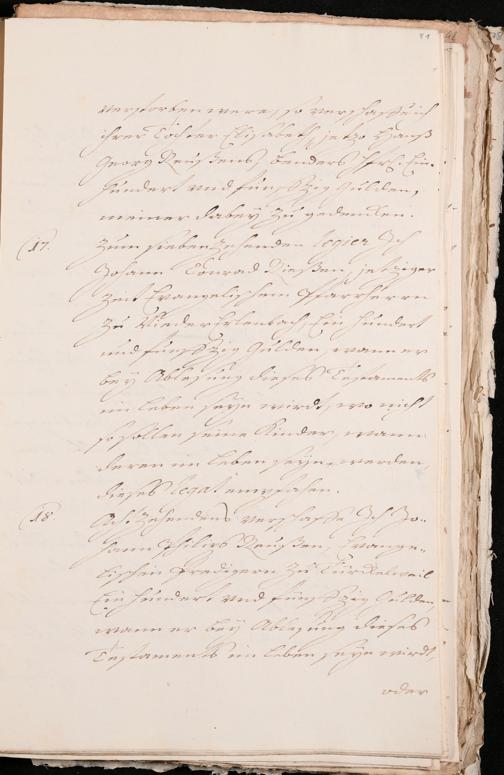 81
verstorben were, so verschaffe ich
ihrer Tochter Elisabeth, jetzo Hanß
Georg Reußens, Benders Fr. Ein-
hundert und fünffzig Gulden,
meiner dabey zu gedencken.
17. Zum siebenzehenden legier Ich
Johann Conrad Rießen, jetziger
Zeit Evangelischem Pfarrherrn
zu Nieder Erlenbach, Ein hundert
und fünffzig Gulden, wann er
bey Ablesung dieses Testaments
im Leben seyn wirdt, wo nicht
so sollen seine Kinder, wann
deren im Leben seyn werden,
dieses legat empfahen.
18. Achtzehendens verschaffe Ich Jo-
hann Philips Reußen, Evange-
lischen Predigern zu
Ein hundert und fünffzig Gulden
wann er bey Ablesung dieses
Testaments im Leben seyn wirdt,
oder